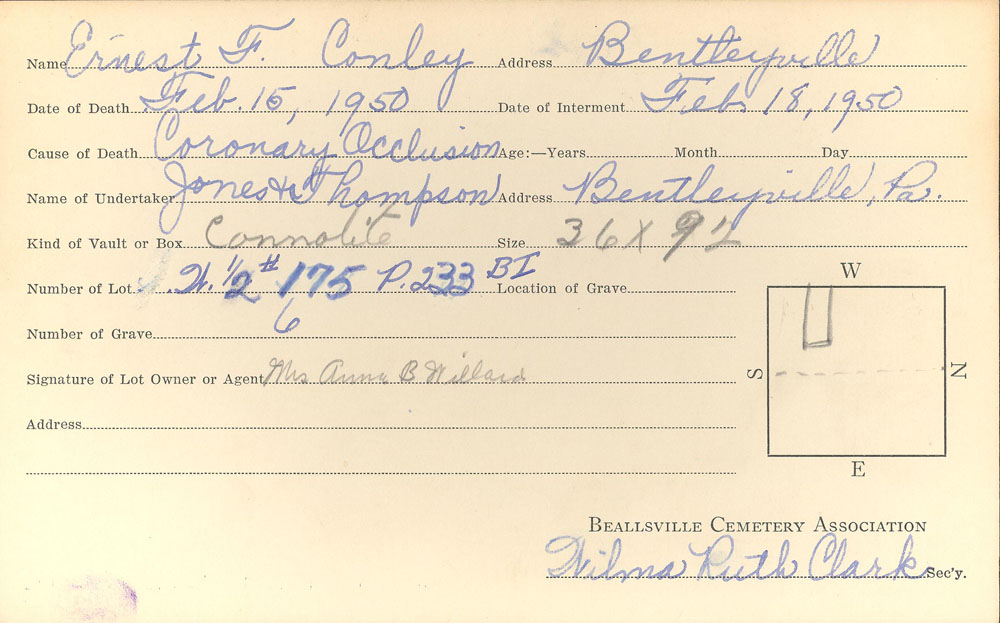 Name Ernest F. Conley Address Bentleyville
Date of Death Feb. 15, 1950 Date of Interment Feb. 18, 1950
Cause of Death Coronary Occlusion Age:—Years Month Day
Name of Undertaker Jones & Thompson Address Bentleyville, Pa.
Kind of Vault or Box Connolite Size 36 X 92
Number of Lot W. 1/2 # 175 P. 233 BI Location of Grave
Number of Grave 6
Signature of Lot Owner or Agent Mrs Anna B Willard
Address
W
S
N
E
BEALLSVILLE CEMETERY ASSOCIATION
Wilma Ruth Clark Sec'y.